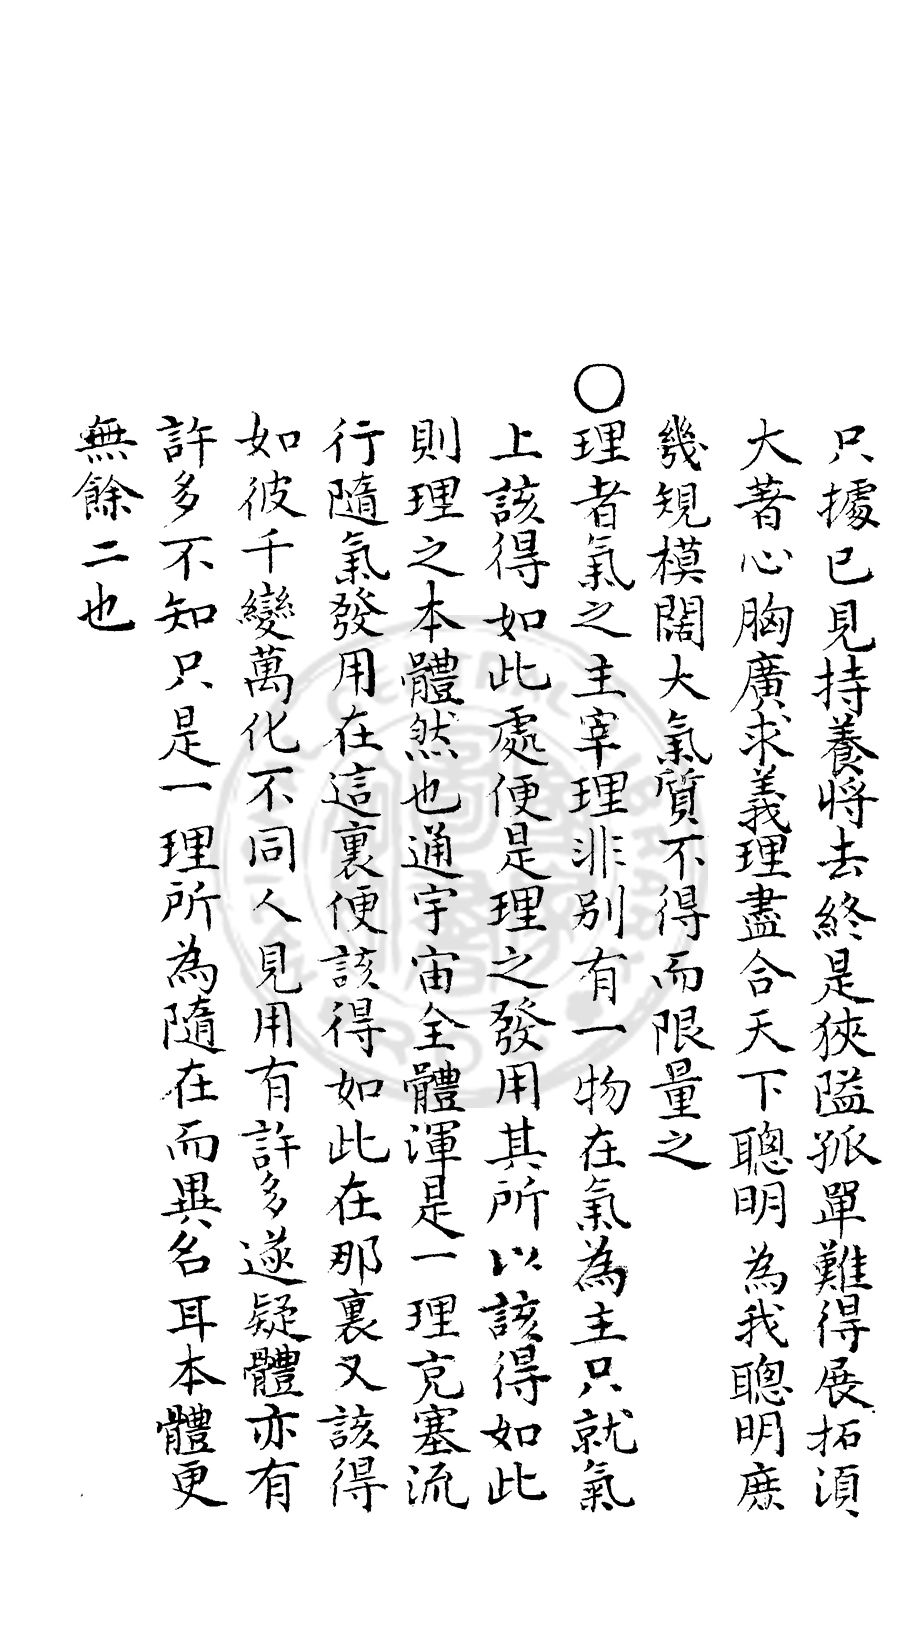 只據已見持養將去終是狹隘孤單難得展拓須
大著心胸廣求義理盡合天下聰明為我聰明庶
幾規模闊大氣質不得而限量之
○理者氣之主宰理非別有一物在氣為主只就氣
上該得如此處便是理之發用其所以該得如此
則理之本體然也通宇宙全體渾是一理充塞流
行隨氣發用在這裏便該得如此在那裏又該得
如彼千變萬化不同人見用有許多遂疑體亦有
許多不知只是一理所為隨在而異名耳本體更
無餘二也